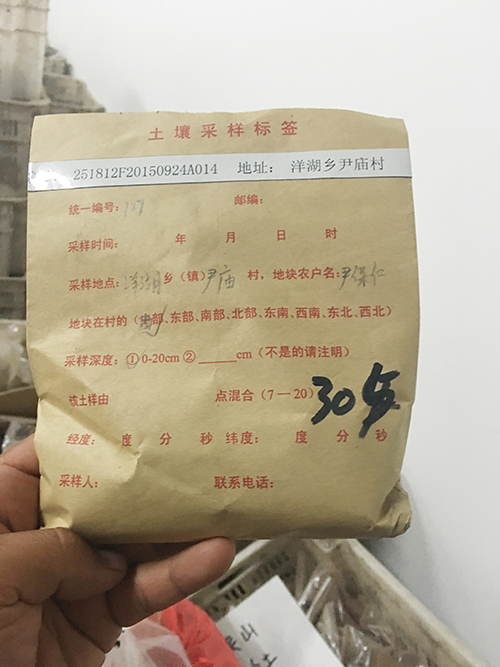 土壤采样标签
251812F20150924A014 地址: 洋湖乡尹庙村
统一编号: 邮编:
采样时间: 年 月 日 时
采样地点: 洋湖 乡(镇) 尹庙 村,地块农户名: 尹保仁
地块在村的(部、东部、南部、北部、东南、西南、东北、西北)
采样深度:①0-20cm ②______cm (不是的请注明)
该土样由 点混合(7—20)
30
经度: 度 分 秒 纬度: 度 分 秒
采样人: 联系电话: